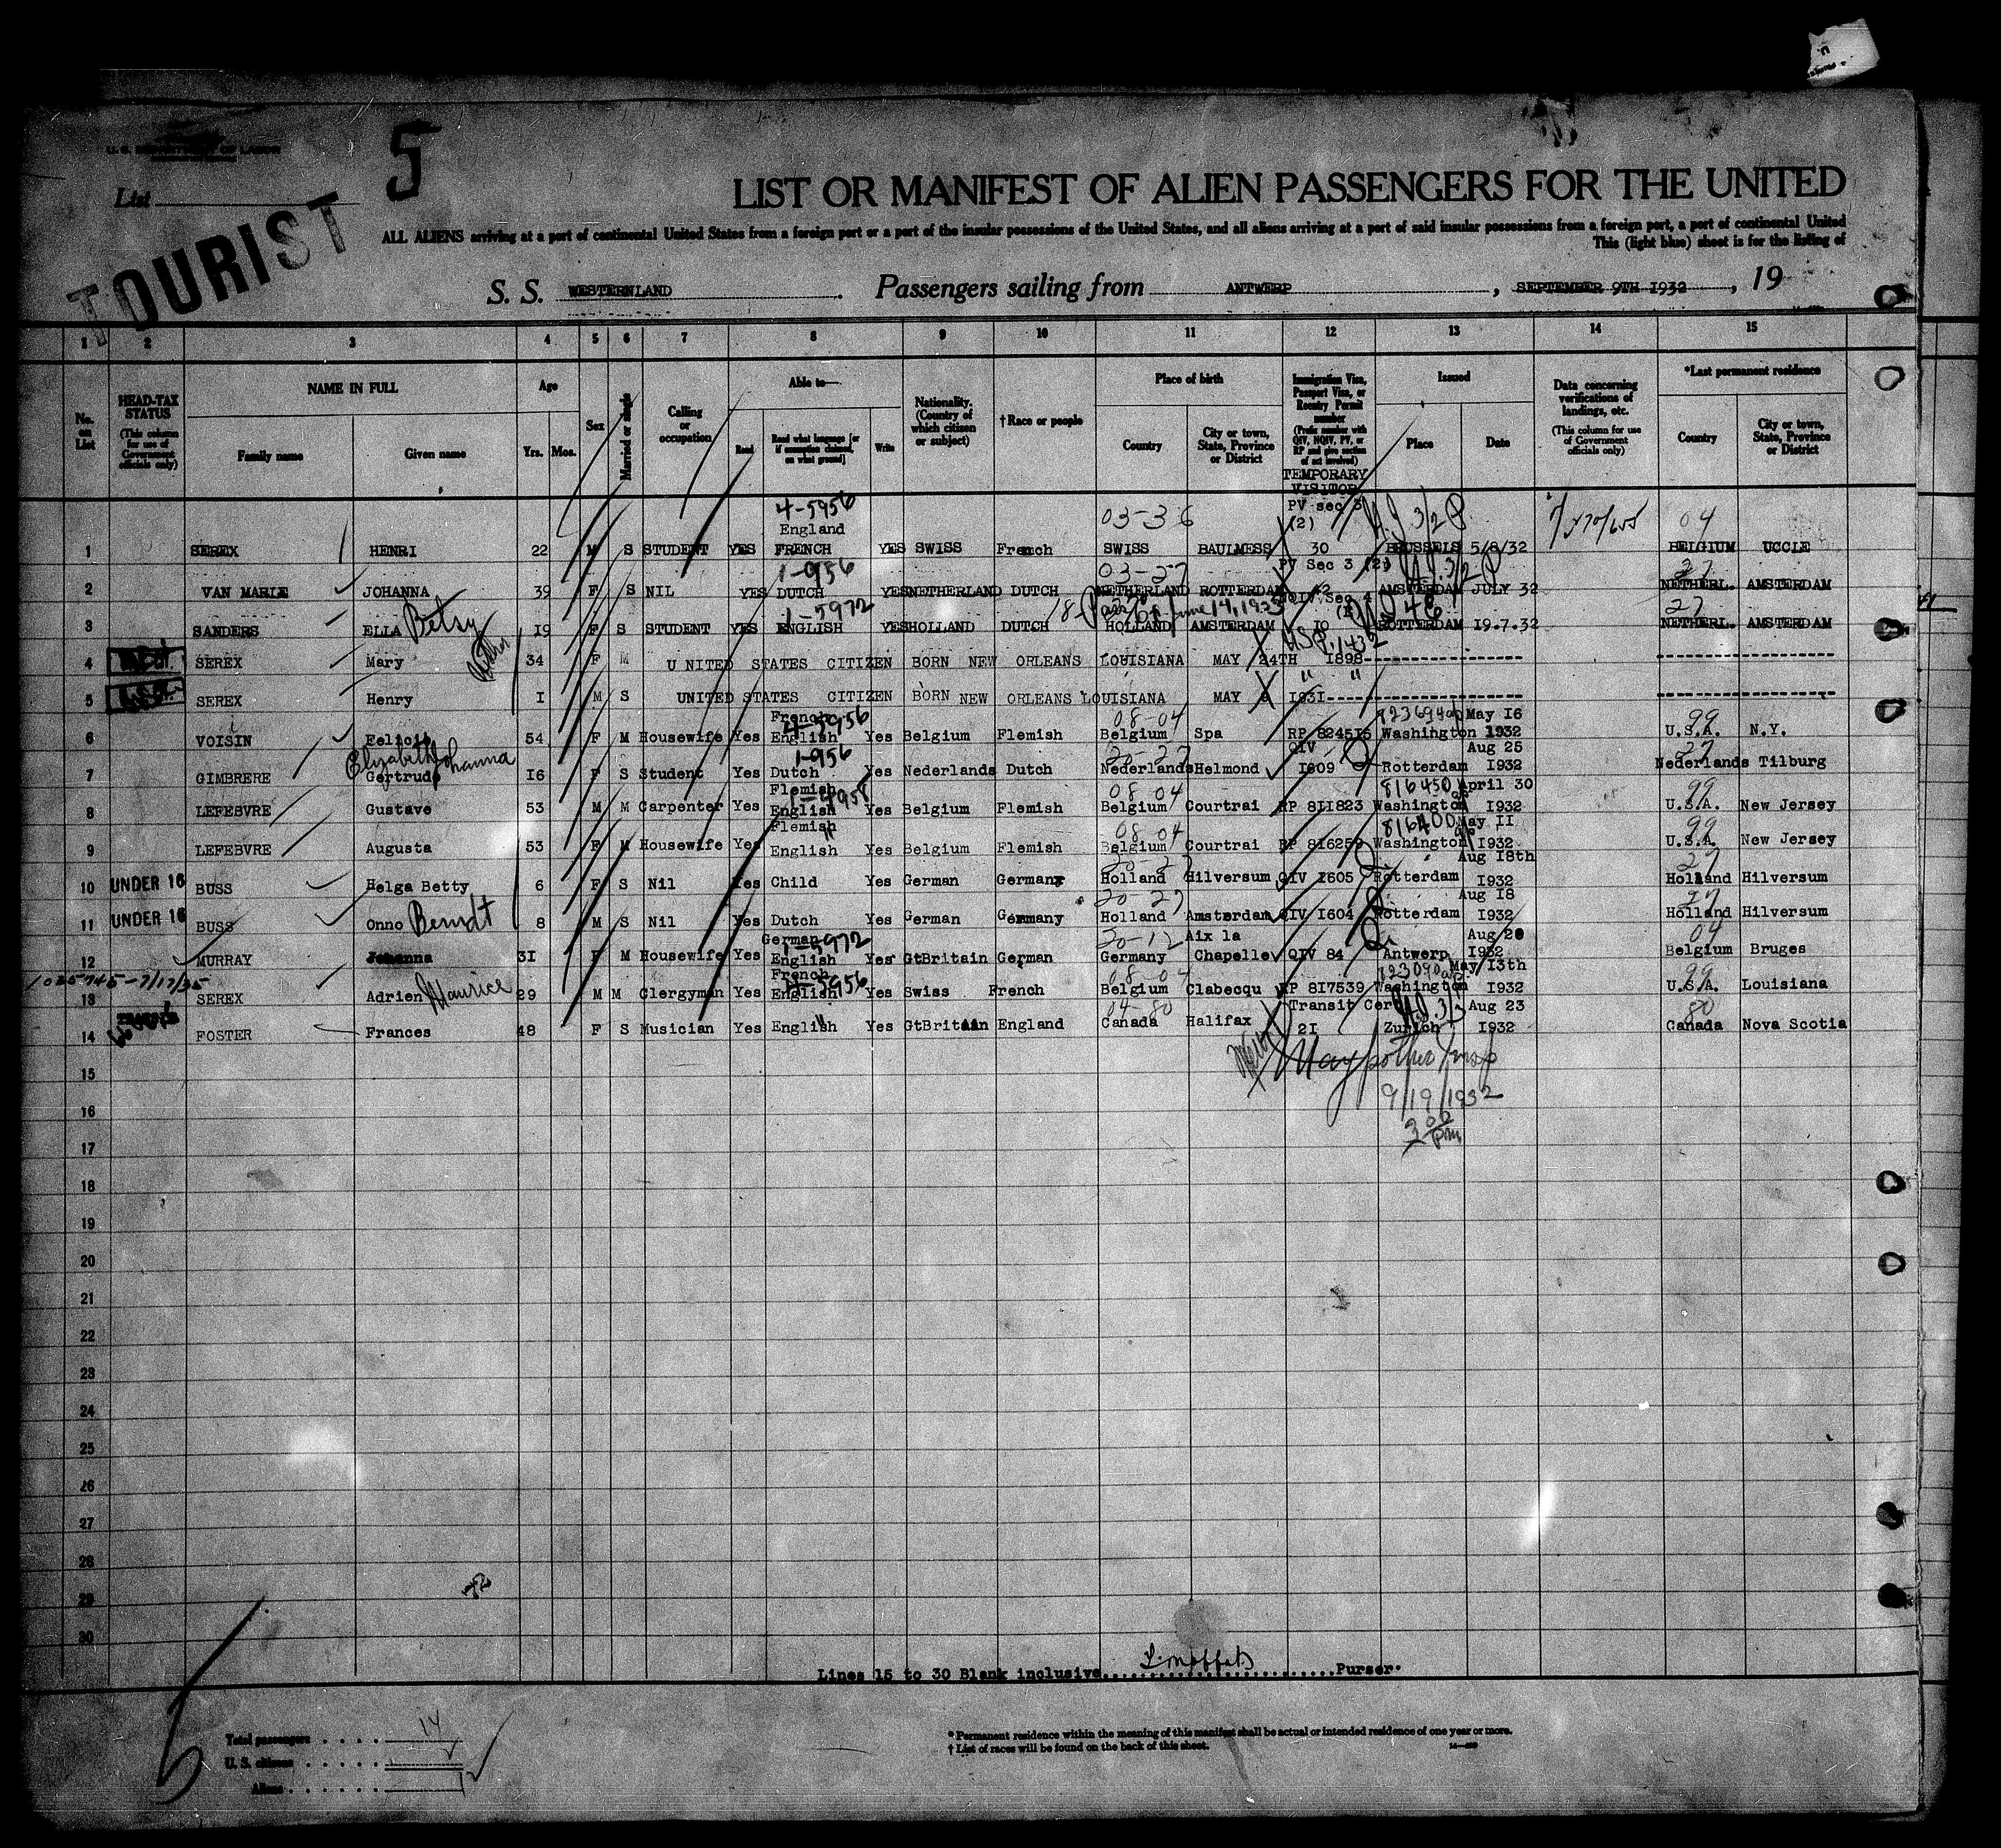 5
U. S. DEPARTMENT OF LABOR
List
TOURIST
LIST OR MANIFEST OF ALIEN PASSENGERS FOR THE UNITED
ALL ALIENS arriving at a port of continental United States from a foreign port or a port of the insular possessions of the United States, and all aliens arriving at a port of said insular possessions from a foreign port, a port of continental United
This (light blue) sheet is for the listing of
S. S. WESTERNLAND. Passengers sailing from ANTWERP, SEPTEMBER 9TH I932, 19
1 2 3 4 5 6 7 8 9 10 11 12 13 14 15
No. on List HEAD-TAX STATUS (This column for use of Government officials only) NAME IN FULL Family name Given name Age Yrs. Mos. Sex Married or single Calling or occupation Able to— Read Read what language [or if exemption claimed, on what ground] Write Nationality. (Country of which citizen or subject) †Race or people Place of birth Country City or town, State, Province or District Immigration Visa, Passport Visa, or Reentry Permit number (Prefix number with QIV, NQIV, PV, or RP and give section of act involved) Issued Place Date Data concerning verifications of landings, etc. (This column for use of Government officials only) *Last permanent residence Country City or town, State, Province or District
TEMPORARY VISITOR
4-5956 03-36 PV sec 3 (2) 04
1 SEREX HENRI 22 M S STUDENT YES England FRENCH YES SWISS French SWISS BAULMESS 30 BRUSSELS 5/8/32 BELGIUM UCCLE
1-956 03-27 PV Sec 3 (2) 27
2 VAN MARLE JOHANNA 39 F S NIL YES DUTCH YES NETHERLAND DUTCH NETHERLAND ROTTERDAM 42 AMSTERDAM JULY 32 NETHERL. AMSTERDAM
1-5972 June 14, 1923 27
3 SANDERS ELLA Betsy I9 F S STUDENT YES ENGLISH YES HOLLAND DUTCH HOLLAND AMSTERDAM IO ROTTERDAM I9.7.32 NETHERL. AMSTERDAM
4 SEREX Mary 34 F M U NITED STATES CITIZEN BORN NEW ORLEANS LOUISIANA MAY 24TH I898
5 SEREX Henry I M S UNITED STATES CITIZEN BORN NEW ORLEANS LOUISIANA MAY I93I
4-5956 08-04 99
6 VOISIN Felicie 54 F M Housewife Yes French English Yes Belgium Flemish Belgium Spa RP 8245I5 Washington May I6 1932 U.S.A. N.Y.
1-956 20-27 27
7 GIMBRERE Elizabeth Johanna Gertrude I6 F S Student Yes Dutch Yes Nederlands Dutch Nederlands Helmond QIV I609 Rotterdam Aug 25 I932 Nederlands Tilburg
08 04 816450 99
8 LEFEBVRE Gustave 53 M M Carpenter Yes Flemish English Yes Belgium Flemish Belgium Courtrai RP 8II823 Washington April 30 I932 U.S.A. New Jersey
08 04 816400 99
9 LEFEBVRE Augusta 53 F M Housewife Yes Flemish English Yes Belgium Flemish Belgium Courtrai RP 8I6259 Washington May II I932 U.S.A New Jersey
20-27 27
10 UNDER 16 BUSS Helga Betty 6 F S Nil Yes Child Yes German Germany Holland Hilversum QIV I605 Rotterdam Aug I8th I932 Holland Hilversum
20-27 27
11 UNDER 16 BUSS Onno Berndt 8 M S Nil Yes Dutch Yes German Germany Holland Amsterdam QIV I604 Rotterdam Aug I8 I932 Holland Hilversum
1-5972 20-12 04
12 MURRAY Johanna 3I F M Housewife Yes German English Yes GtBritain German Germany Aix la Chapelle QIV 84 Antwerp Aug 20 I932 Belgium Bruges
4-5956 08-04 99
13 SEREX Adrien Maurice 29 M M Clergyman Yes French English Yes Swiss French Belgium Clabecqu RP 8I7539 Washington May I3th I932 U.S.A. Louisiana
04-80 80
14 FOSTER Frances 48 F S Musician Yes English Yes GtBritain England Canada Halifax Transit Cer 2I Zurich Aug 23 I932 Canada Nova Scotia
15
9/19/1932
16
17
18
19
20
21
22
23
24
25
26
27
28
29
30
Lines I5 to 30 Blank inclusive Purser.
Total passengers 14
U. S. citizens
Aliens
* Permanent residence within the meaning of this manifest shall be actual or intended residence of one year or more.
† List of races will be found on the back of this sheet.